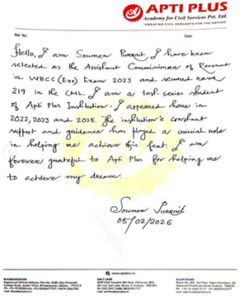 APTI PLUS
Academy for Civil Services Pvt. Ltd.
Ref. No.
Date
Hello, I am Soumen Purkait, I have been
selected as the Assistant Commissioner of Revenue
in WBCS (Exe) Exam 2023 and secured rank
219 in the CML. I am a test series student
of Apti Plus Institution. I appeared here in
2022, 2023 and 2025. The institution's constant
support and guidance has played a crucial role
in helping me achieve this feat. I am
forever grateful to Apti Plus for helping me
to achieve my dream.
Soumen Purkait
05/02/2026
www.aptiplus.in
BHUBANESWAR
SALT LAKE